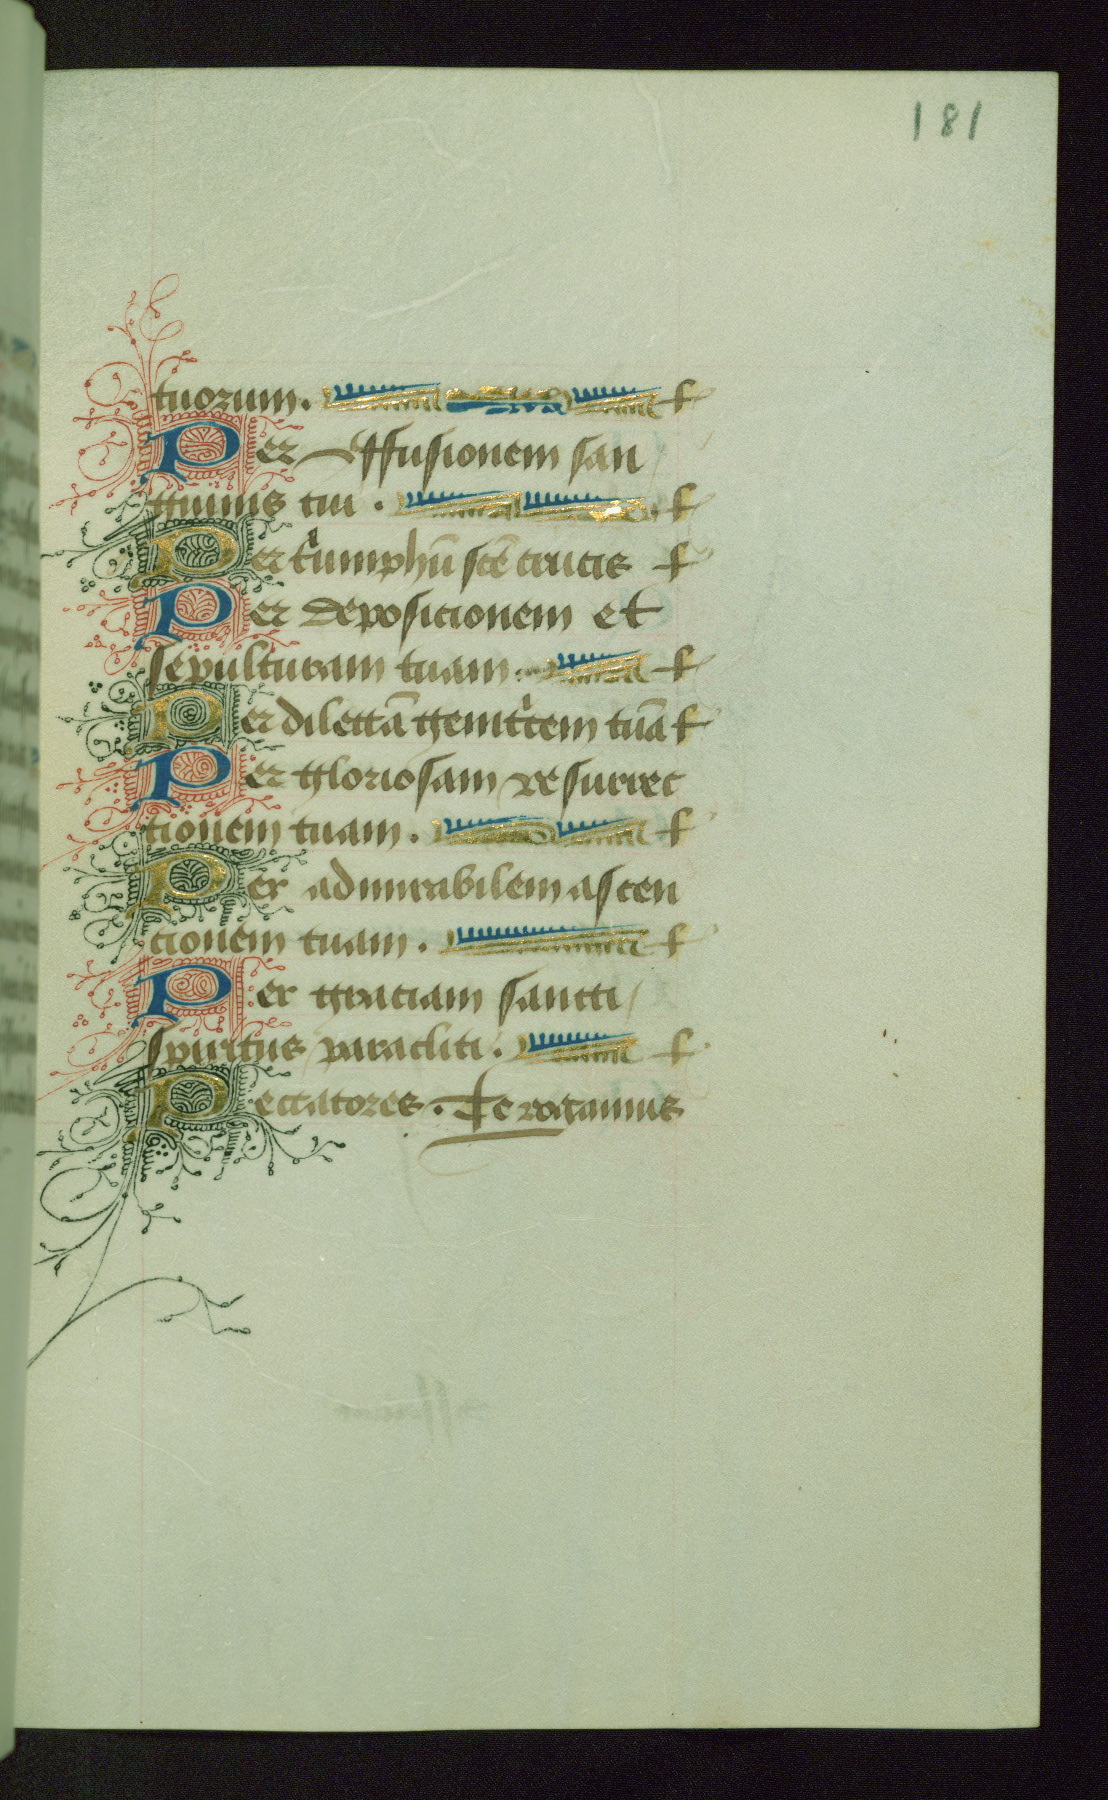 181
tuorum. f
Per effusionem san
guinis tui. f
Per triumphū scē crucis f
Per deposicionem et
sepulturam tuam. f
Per dilectā genitͥcem tuā f
Per gloriosam resurrec
tionem tuam. f
Per admirabilem ascen
cionem tuam. f
Per graciam sancti
spiritus paracliti. f
Peccatores. Te rogamus